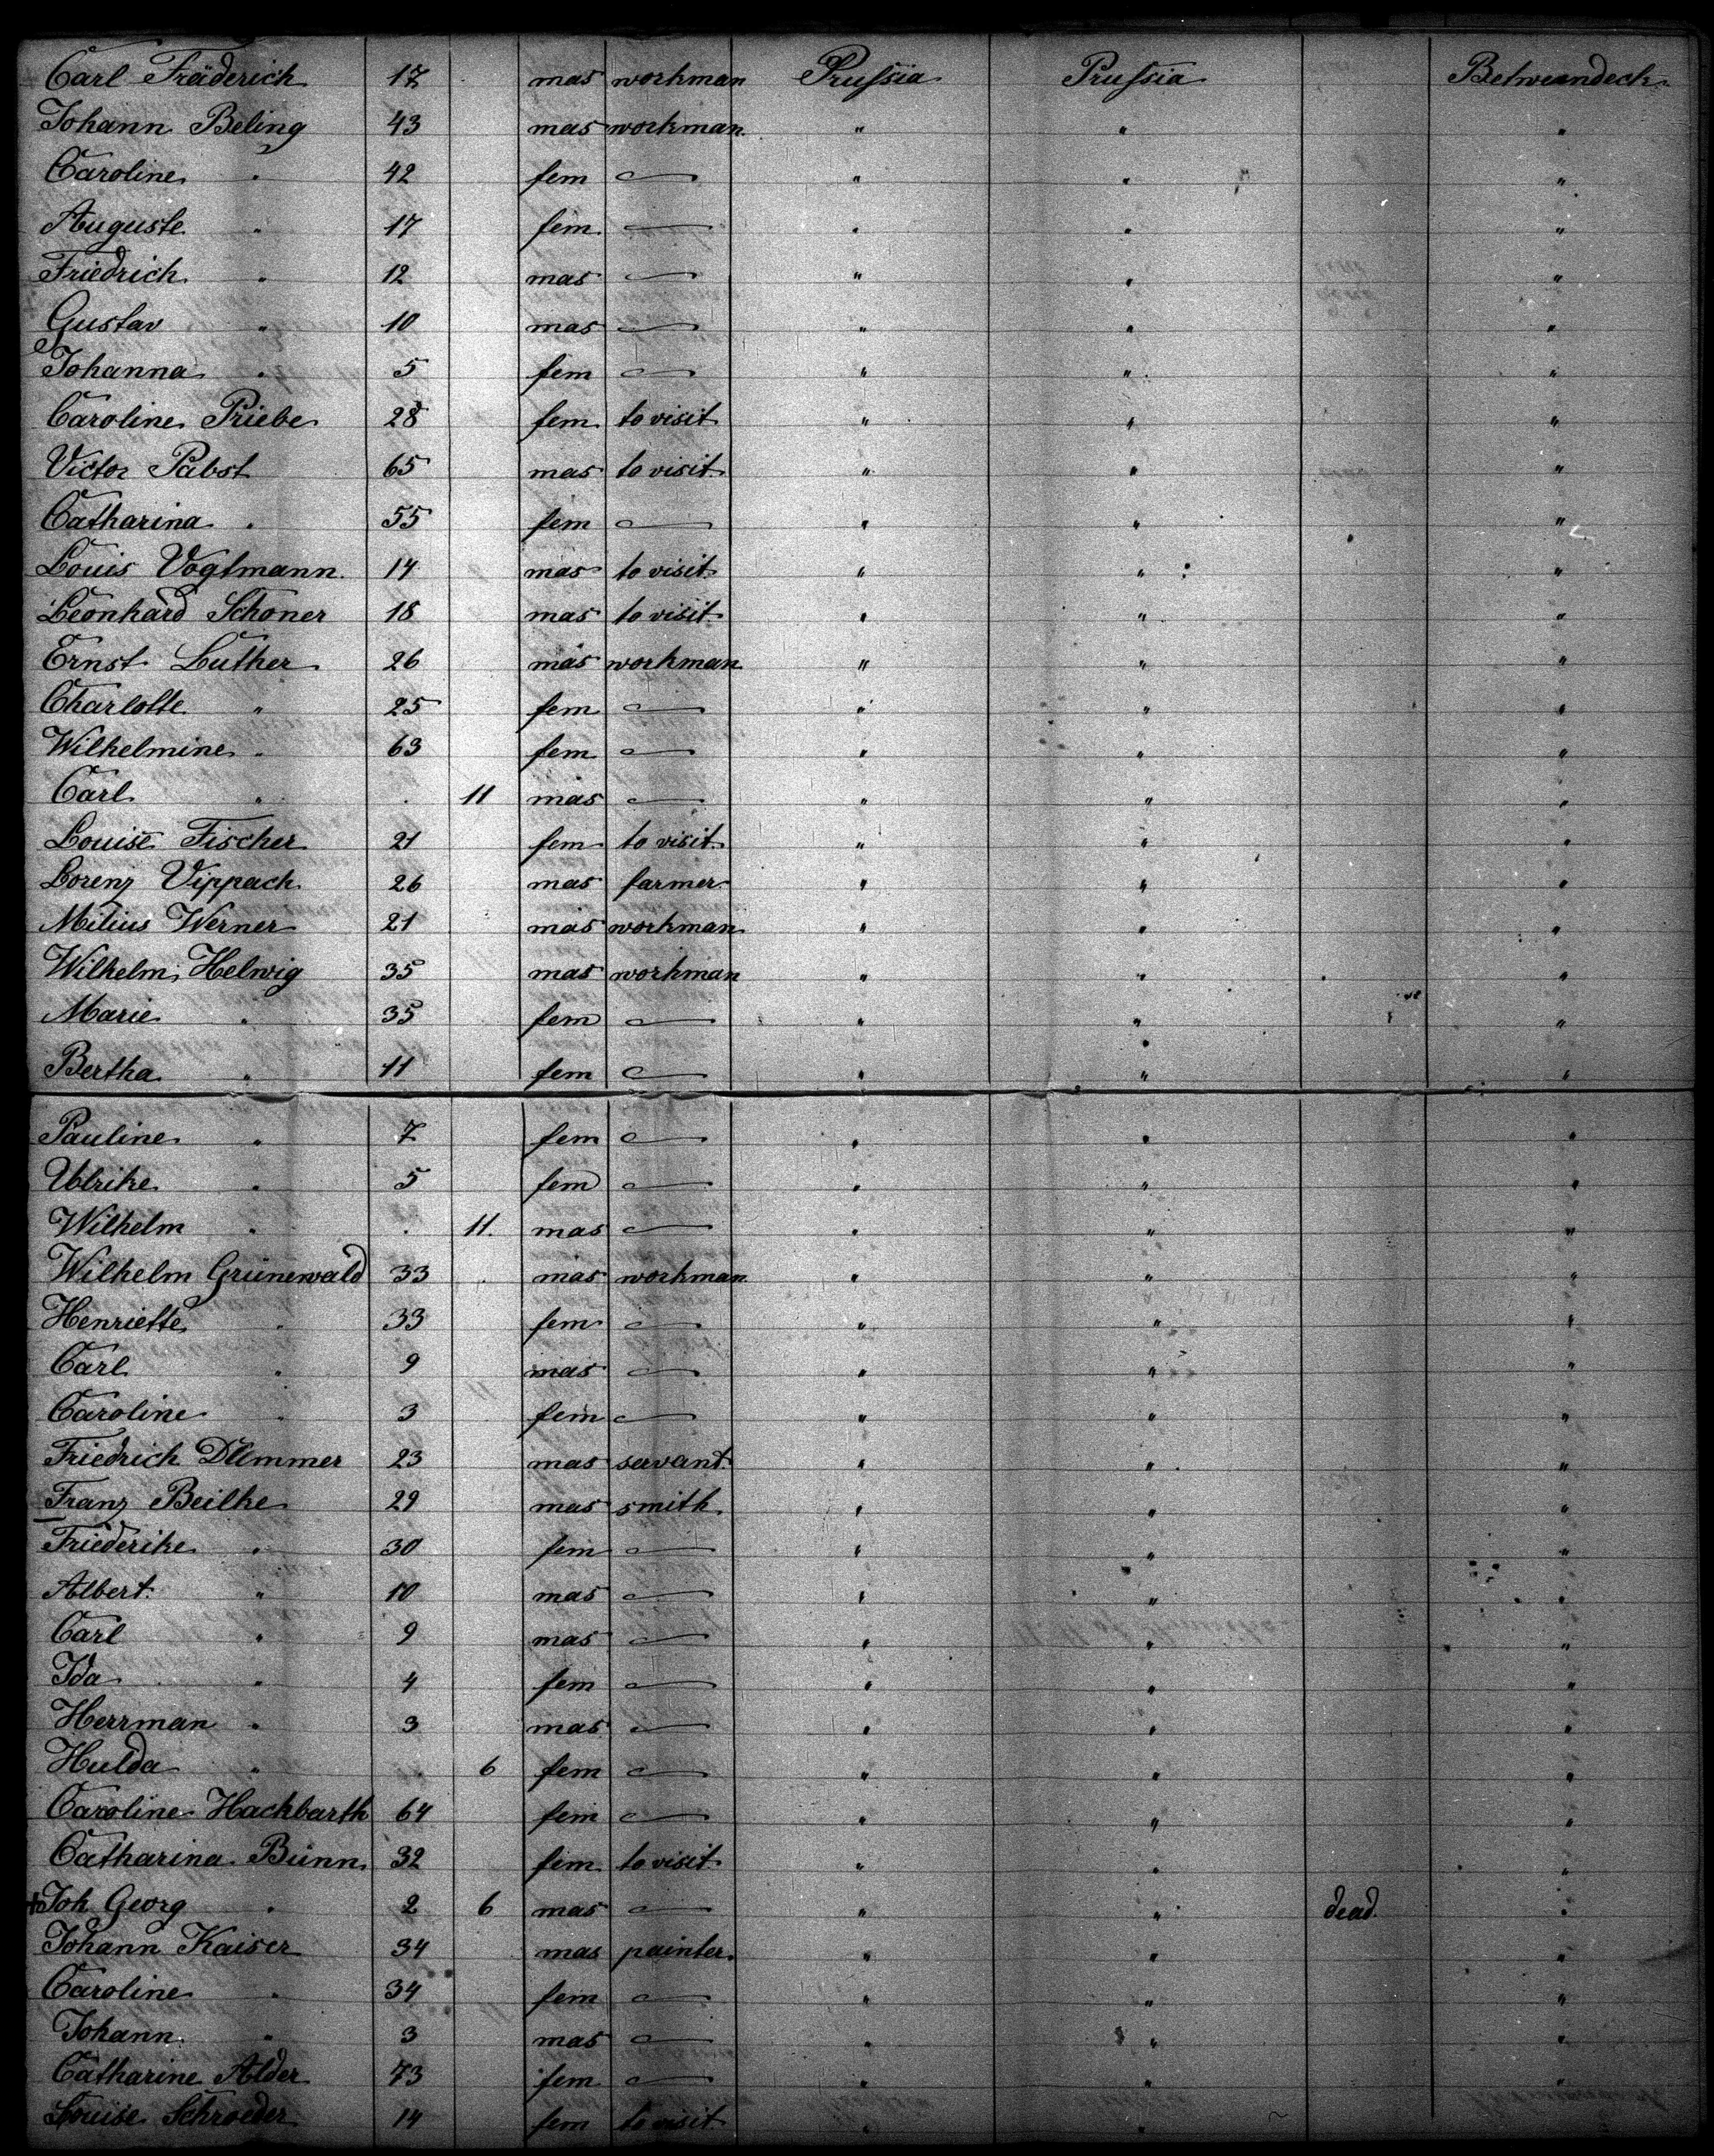 Carl Fräderich 17 mas workman Prussia Prussia Betweendeck
Johann Beling 43 mas workman " " "
Caroline " 42 fem — " " "
Auguste " 17 fem — " " "
Friedrich " 12 mas — " " "
Gustav " 10 mas — " " "
Johanna " 5 fem — " " "
Caroline Priebe 28 fem to visit " " "
Victor Pabst 65 mas to visit " " "
Catharina " 55 fem — " " "
Louis Vogtmann 14 mas to visit " " "
Leonhard Schoner 18 mas to visit " " "
Ernst Luther 26 mas workman " " "
Charlotte " 25 fem — " " "
Wilhelmine " 63 fem — " " "
Carl " . 11 mas — " " "
Louise Fischer 21 fem to visit " " "
Lorenz Vippach 26 mas farmer " " "
Milius Werner 21 mas workman " " "
Wilhelm Helwig 35 mas workman " " "
Marie " 35 fem — " " "
Bertha " 11 fem — " " "
Pauline " 7 fem — " " "
Ulrike " 5 fem — " " "
Wilhelm " . 11. mas — " " "
Wilhelm Grünewald 33 mas workman " " "
Henriette " 33 fem — " " "
Carl " 9 mas — " " "
Caroline " 3 fem — " " "
Friedrich 23 mas servant " " "
Franz Beilke 29 mas smith " " "
Friederike " 30 fem — " " "
Albert " 10 mas — " " "
Carl " 9 mas — " " "
Ida " 4 fem — " " "
Herrman " 3 mas — " " "
Hulda " 6 fem — " " "
Caroline Hackbarth 64 fem — " " "
Catharina Bünn 32 fem to visit " " "
+ Joh Georg " 2 6 mas — " " dead "
Johann Kaiser 34 mas painter " " "
Caroline " 34 fem — " " "
Johann " 3 mas — " " "
Catharine Alder 73 fem — " " "
Louise Schroeder 14 fem to visit " "